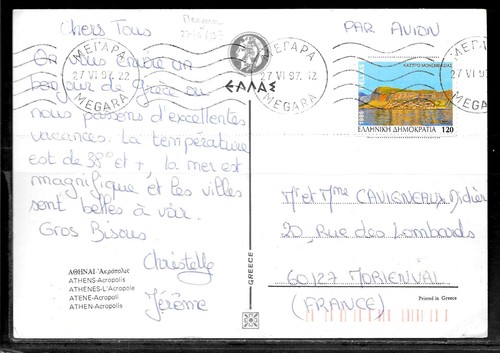 Chers Tous
On vous envoie un
bonjour de Grèce ou
nous passons d'excellentes
vacances. La température
est de 38° et +, la mer est
magnifique et les villes
sont belles à voir.
Gros Bisous.
Christelle
Jérôme
ΑΘΗΝΑΙ - Ἀκρόπολις
ATHENS-Acropolis
ATHENES-L'Acropole
ATENE-Acropoli
ATHEN-Acropolis
ΕΛΛΑΣ
GREECE
PAR AVION
ΜΕΓΑΡΑ
27 VI 97. 22
MEGARA
ΜΕΓΑΡΑ
27 VI 97. 22
MEGARA
ΚΑΣΤΡΟ ΜΟΝΕΜΒΑΣΙΑΣ
ΕΛΛΗΝΙΚΗ ΔΗΜΟΚΡΑΤΙΑ 120
Mr et Mme CAVIGNEAUX Didier
20, Rue des Lombards
60127 MORIENVAL
(FRANCE)
Printed in Greece